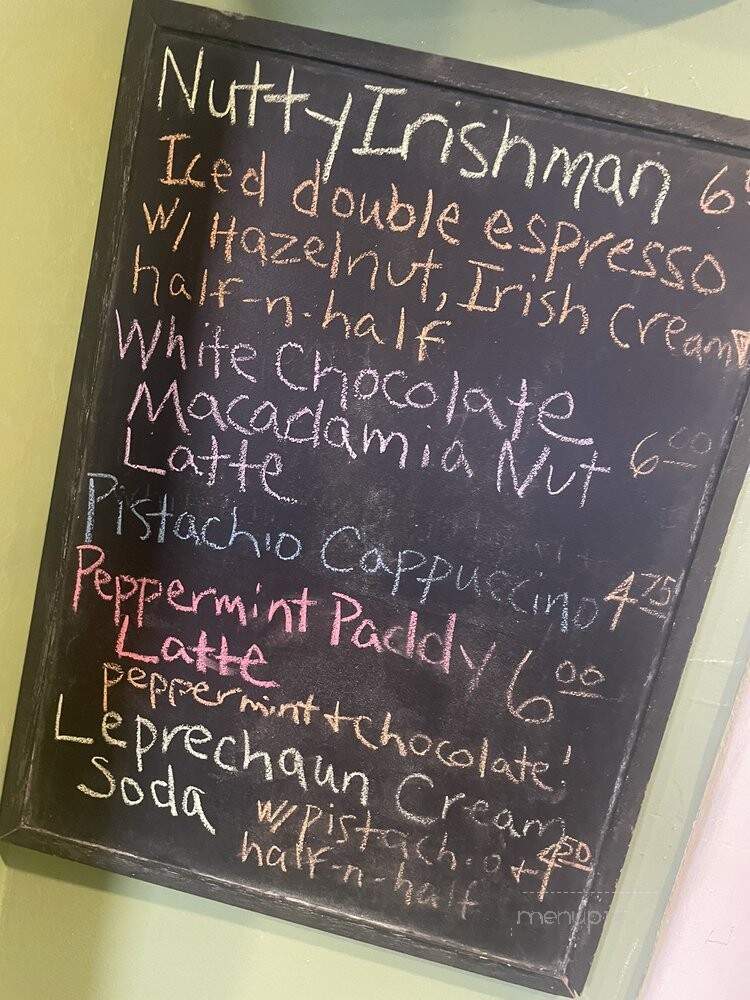 Nutty Irishman 6
Iced double espresso
w/ Hazelnut, Irish Cream
half-n-half
White Chocolate
Macadamia Nut 6.00
Latte
Pistachio Cappuccino 4.75
Peppermint Paddy
Latte 6.00
peppermint + chocolate!
Leprechaun Cream
Soda
w/ pistachio +
half-n-half
menupix